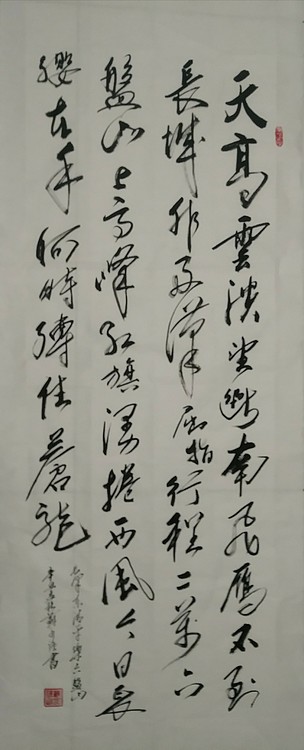 天高雲淡望斷南飛雁不到
長城非好漢屈指行程二萬六
盤山上高峰紅旗漫捲西風今日長
纓在手何時縛住蒼龍
毛澤東清平樂六盤山
書